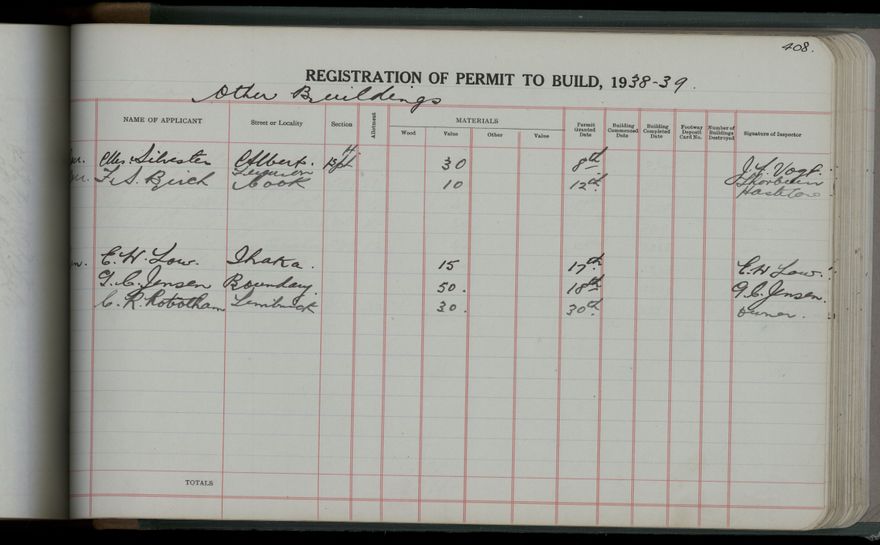 408.
REGISTRATION OF PERMIT TO BUILD, 1938-39.
Other Buildings
NAME OF APPLICANT Street or Locality Section Allotment MATERIALS Permit Granted Date Building Commenced Date Building Completed Date Footway Deposit Card No. Number of Buildings Destroyed Signature of Inspector
Wood Value Other Value
Mrs. Silvester Albert. 30 8th J. L. Vogt.
F. S. Birch Ferguson Cook 10 12th
E. H. Low. Ihaka. 15 17th E. H. Low.
G. C. Jensen Boundary. 50. 18th G. C. Jensen.
C. R. Robotham 30. 30th Owner.
TOTALS